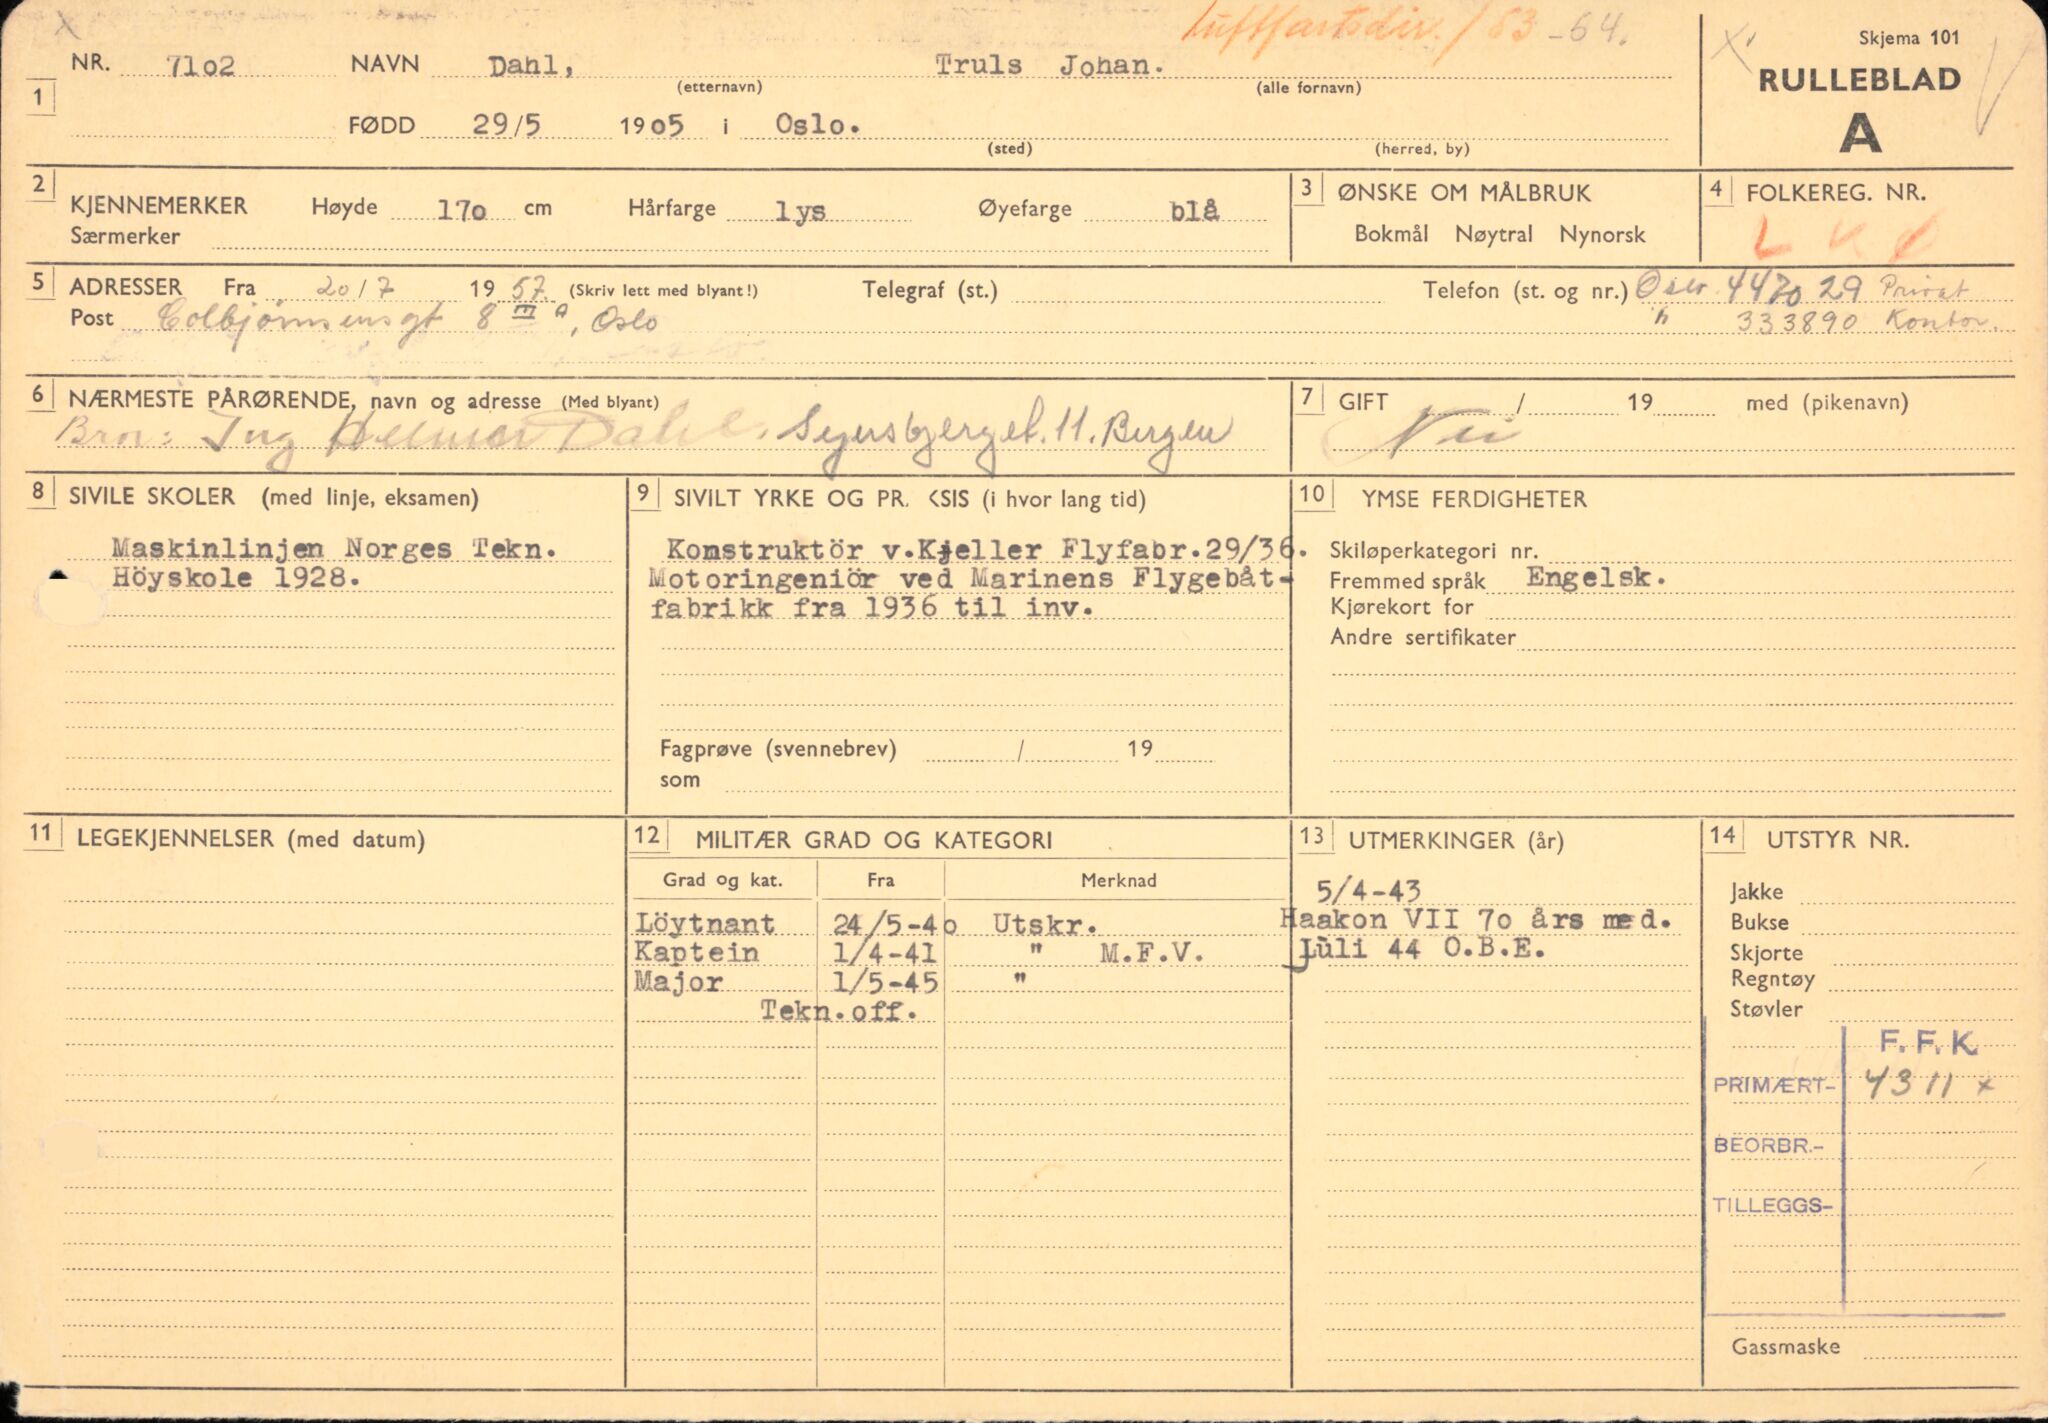 Luftfartsdir. / 63 - 64.
Skjema 101
RULLEBLAD
A
1
NR. 7102 NAVN Dahl, Truls Johan.
(etternavn) (alle fornavn)
FØDD 29/5 1905 i Oslo.
(sted) (herred, by)
2
KJENNEMERKER Høyde 170 cm Hårfarge lys Øyefarge blå
Særmerker
3 ØNSKE OM MÅLBRUK
Bokmål Nøytral Nynorsk
4 FOLKEREG. NR.
L K Ø
5 ADRESSER Fra 20/7 1957. (Skriv lett med blyant!) Telegraf (st.) Telefon (st. og nr.) Oslo 447029 Privat
Post Colbjørnsensgt 8 III a, Oslo " 333890 Kontor.
6 NÆRMESTE PÅRØRENDE, navn og adresse (Med blyant)
Bror: Ing Helmer Dahl, 11. Bergen
7 GIFT / 19 med (pikenavn)
Nei
8 SIVILE SKOLER (med linje, eksamen)
Maskinlinjen Norges Tekn.
Höyskole 1928.
9 SIVILT YRKE OG PR. KSIS (i hvor lang tid)
Konstruktör v.Kjeller Flyfabr.29/36.
Motoringeniör ved Marinens Flygebåt-
fabrikk fra 1936 til inv.
Fagprøve (svennebrev) / 19
som
10 YMSE FERDIGHETER
Skiløperkategori nr.
Fremmed språk Engelsk.
Kjørekort for
Andre sertifikater
11 LEGEKJENNELSER (med datum)
12 MILITÆR GRAD OG KATEGORI
Grad og kat. Fra Merknad
Löytnant 24/5-40 Utskr.
Kaptein 1/4-41 " M.F.V.
Major 1/5-45 "
Tekn.off.
13 UTMERKINGER (år)
5/4-43
Haakon VII 70 års med.
Juli 44 O.B.E.
14 UTSTYR NR.
Jakke
Bukse
Skjorte
Regntøy
Støvler
F. F. K.
PRIMÆRT- 4311 x
BEORBR.-
TILLEGGS-
Gassmaske